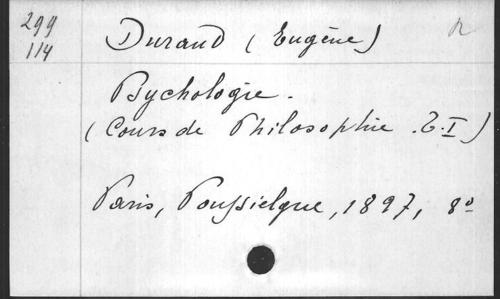 299
114
Durand (Eugène)
Psychologie.
(Cours de Philosophie. T. I)
Paris, Poussielgue, 1897, 8º